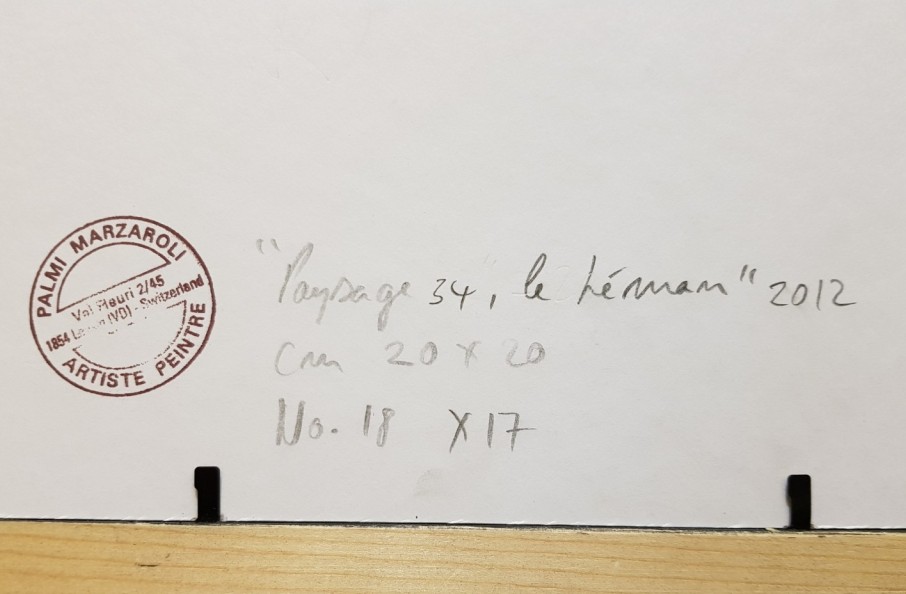 PALMI MARZAROLI
Val Fleuri 2/45
1854 (VD) - Switzerland
ARTISTE PEINTRE
"Paysage 34", le Léman" 2012
cm 20 x 20
No. 18 X17